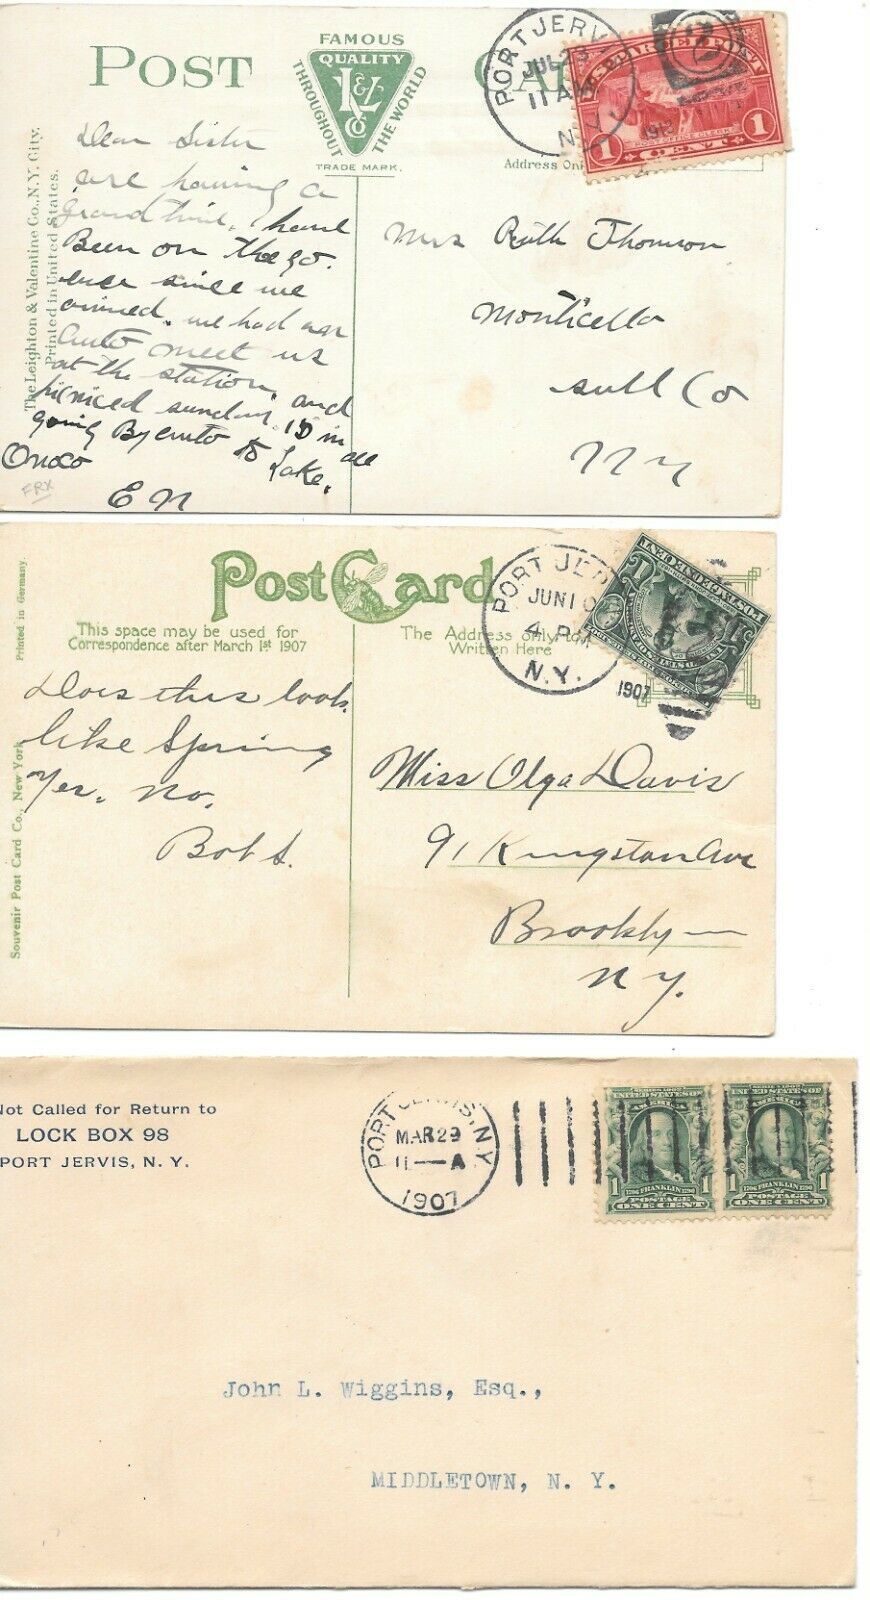 POST CARD
FAMOUS
QUALITY
THROUGHOUT THE WORLD
L & V
CO
TRADE MARK.
PORT JERV
JUL 23
11 A
N.Y.
1913
2
U.S. PARCEL POST
POST OFFICE CLERK
1 CENT 1
Address Onl
The Leighton & Valentine Co., N.Y. City.
Printed in United States.
Dear Sister
are having a
grand time. have
Been on the go.
ever since we
arrived. we had an
auto meet us
at the station.
picniced sunday. and
going By auto to
Lake.
E N
FRX
Mrs Ruth Thomson
Monticello
Sull Co
N Y
Post Card
Printed in Germany.
This space may be used for
Correspondence after March 1st 1907
The Address only to
Written Here
PORT JER
JUN 10
4 PM
N.Y.
1907
Souvenir Post Card Co., New York
Does this look
like Spring
Yes. No.
Bob S.
Miss Olga Davis
91 Kingston Ave
Brooklyn
N Y.
Not Called for Return to
LOCK BOX 98
PORT JERVIS, N. Y.
PORT JERVIS, N.Y.
MAR 29
11 — A
1907
SERIES 1902
UNITED STATES OF
AMERICA
1 FRANKLIN 1
POSTAGE
ONE CENT
SERIES 1902
UNITED STATES OF
AMERICA
1 FRANKLIN 1
POSTAGE
ONE CENT
John L. Wiggins, Esq.,
MIDDLETOWN, N. Y.